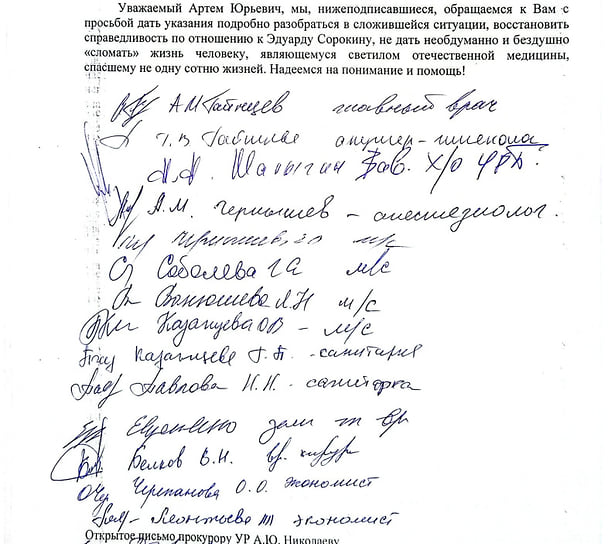 Уважаемый Артем Юрьевич, мы, нижеподписавшиеся, обращаемся к Вам с
просьбой дать указания подробно разобраться в сложившейся ситуации, восстановить
справедливость по отношению к Эдуарду Сорокину, не дать необдуманно и бездушно
«сломать» жизнь человеку, являющемуся светилом отечественной медицины,
спасшему не одну сотню жизней. Надеемся на понимание и помощь!
А.М. главный врач
акушер-гинеколог
Шалыгин Зав. Х/О ЦРБ.
А.М. Чернышев - анестезиолог.
м/с
Соболева Г.А м/с
Ванюшева Л.Н м/с
Казанцева О В - м/с
Казанцева Г.П. - санитарка
Павлова Н.Н. - санитарка
зам вр
Белков В.Н. вр. хирург
Черепанова О.О. экономист
Леонтьева экономист
Открытое письмо прокурору УР А.Ю. Николаеву